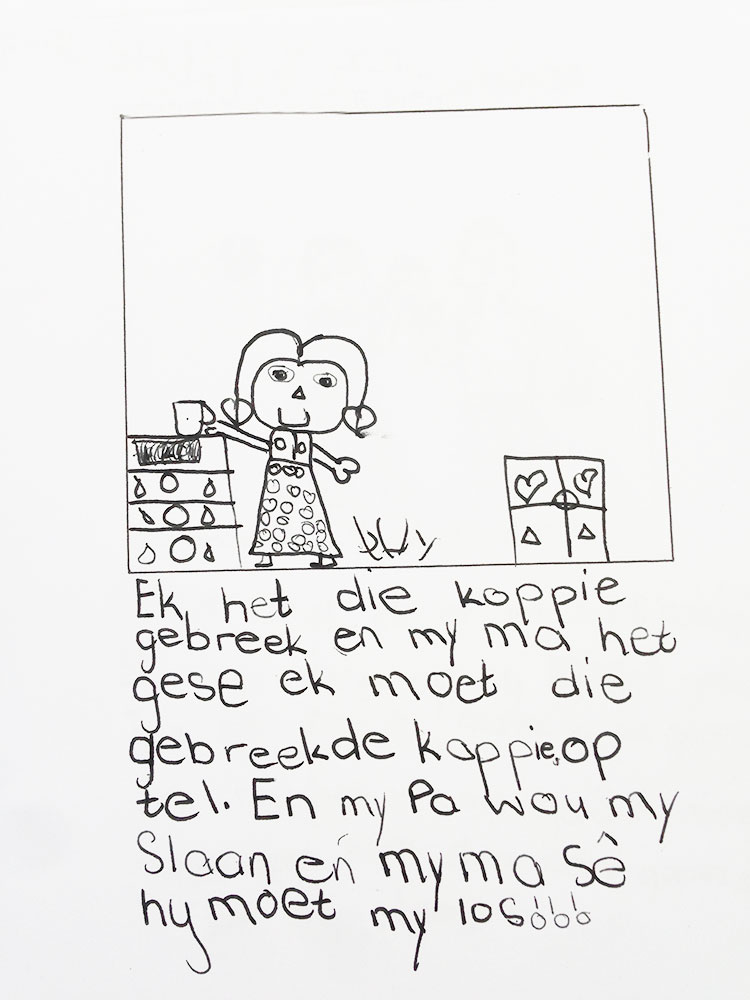 Ek het die koppie
gebreek en my ma het
gese ek moet die
gebreekde koppie.op
tel. En my Pa wou my
Slaan en my ma Sê
hy moet my los!!!